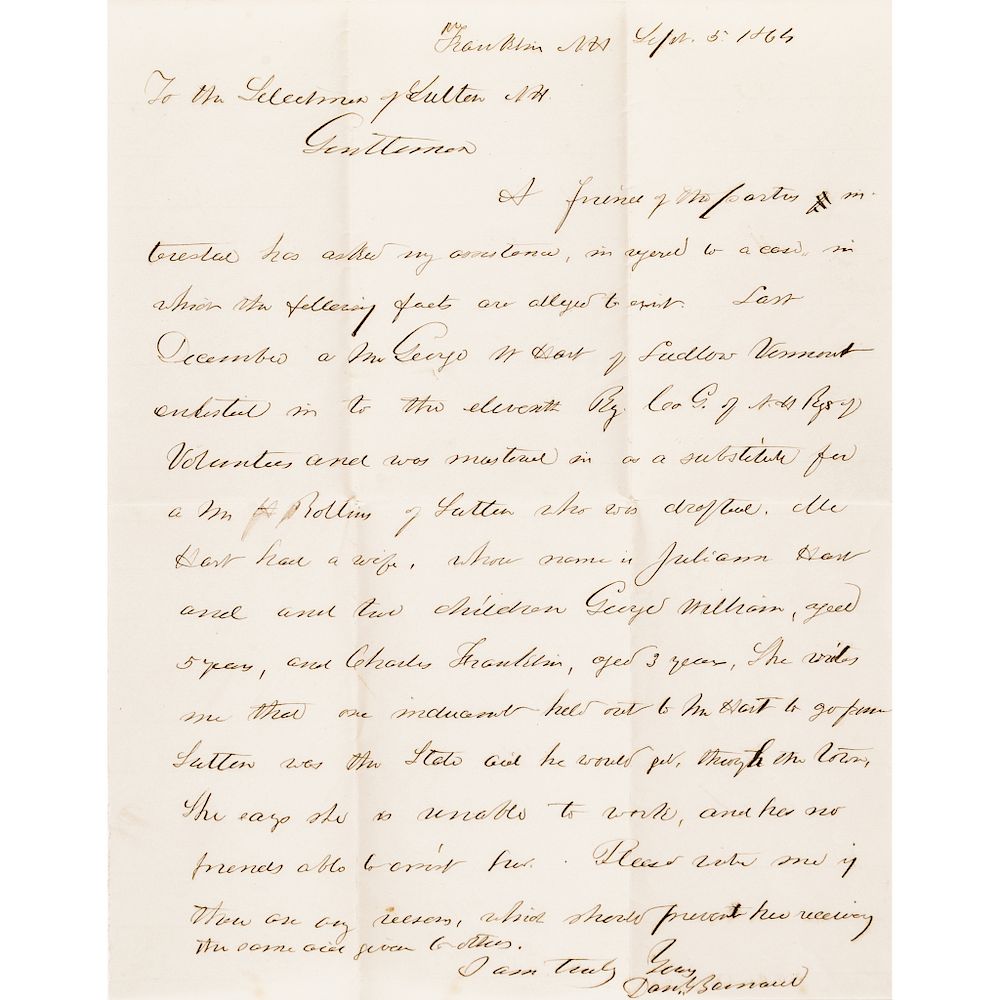 Franklin NH Sept. 5. 1864
To the Selectmen of Sutton NH.
Gentlemen
A friend of the parties in
terested has asked my assistance, in regard to a case, in
which the following facts are alleged to exist. Last
December a Mr George W Hart of Ludlow Vermont
enlisted in to the eleventh Reg. Co G. of NH Regs of
Volunteers and was mustered in as a substitute for
a Mr H Rollins of Sutton who was drafted. Mr
Hart had a wife, whose name is Juliann Hart
and and two children George William, aged
5 years, and Charles Franklin, aged 3 years, She writes
me that one inducement held out to Mr Hart to go from
Sutton was the State aid he would get, through the town,
She says she is unable to work, and has no
friends able to assist her. Please write me if
there are any reasons, which should prevent her receiving
the same aid given to others.
I am truly Yours
Danl Barnard